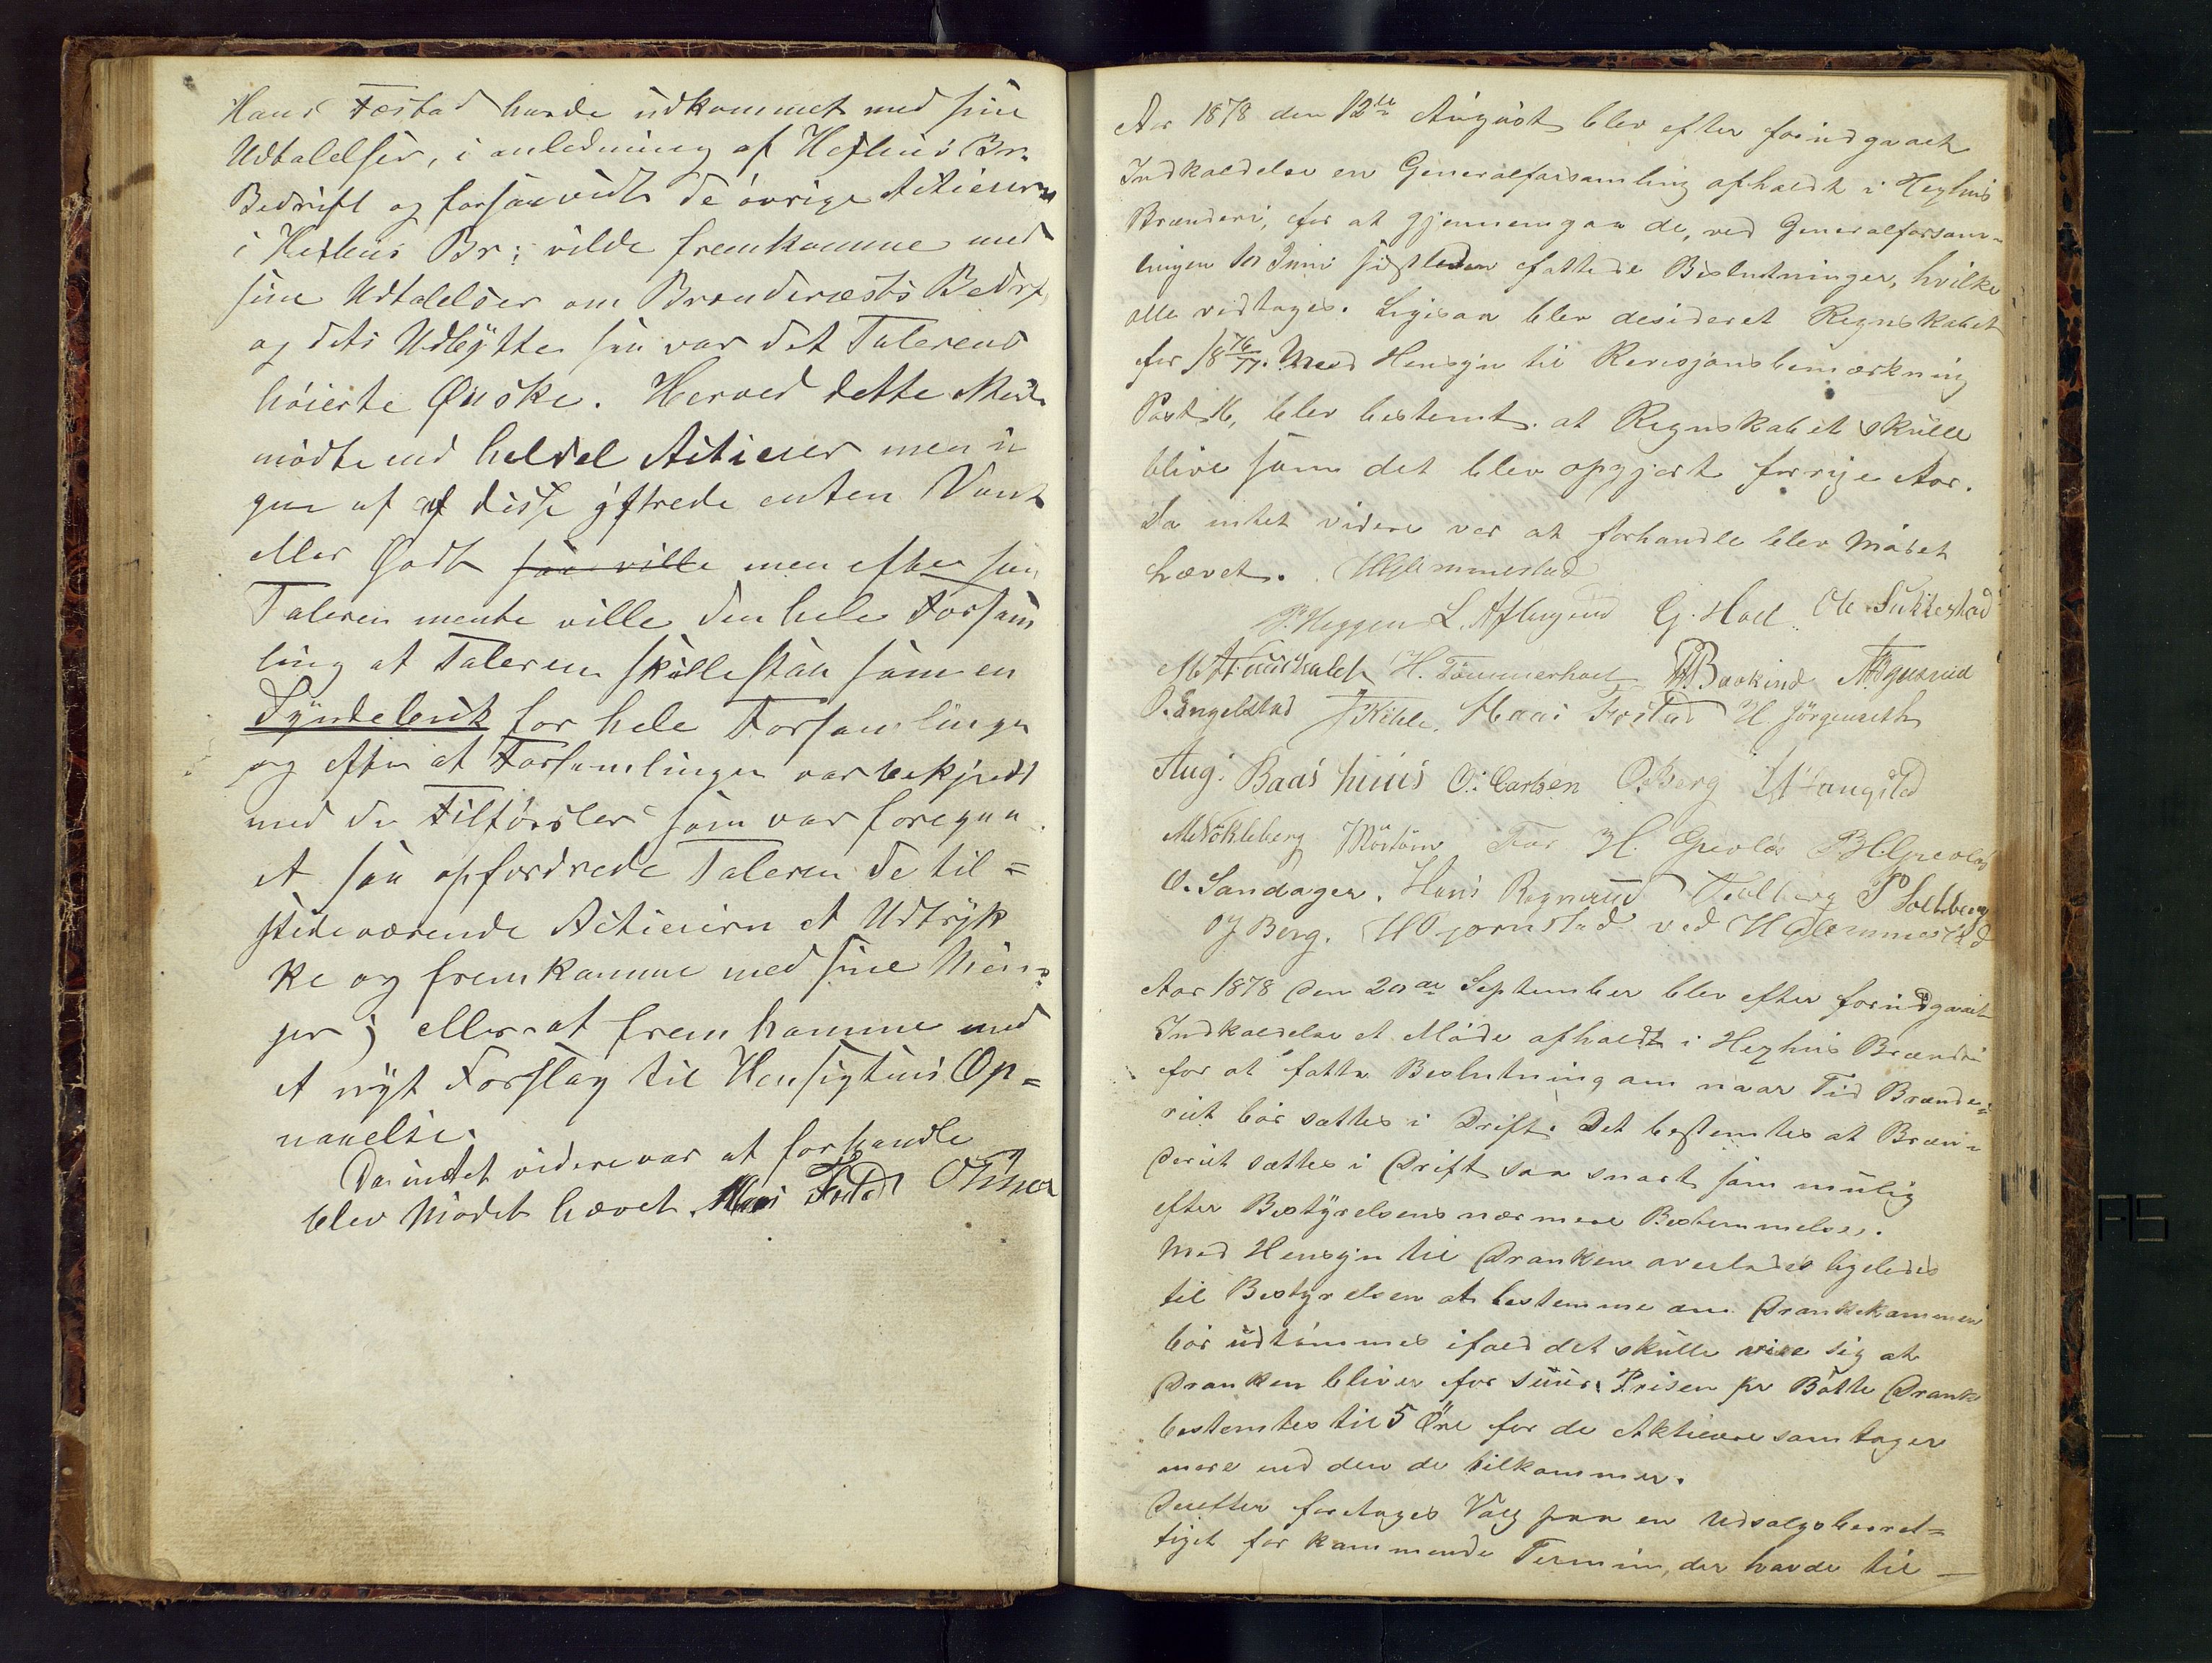 Hans Fæstad havde udkommet med sine
Udtalelser, i anledning af Heflius Br.
Bedrift og forsaavidt de övrige Actieiern
i Heflius Br: vilde fremkomme med
sine Udtalelser om Brænderiets Bedr
og dets Udbÿtte saa var det Talerens
höieste Ønske. Herved dette Möde
mödte en hel del Actieier men in
gen af af disse ÿttrede enten Vont
eller Godt saa ville men efter som
Taleren mente ville den hele Forsam
ling at Taleren skulle staa som en
Sÿndebuk for hele Forsamlingen
og efter at Forsamlingen var bekjendt
med de Tilförsler som var foregaa
et saa opfordrede Taleren de til=
stedeværende Actieiern et Udtrÿk
ke og fremkomme med sine Menin=
ger; eller at fremkomme med
et nÿt Forslag til Hensigtens Op=
naaelse.
Da intet videre var at forhandle
blev Mödet hævet. Hans Fæstad
Aar 1878 den 12te August blev efter forudgaaet
Indkaldelse en Generalforsamling afholdt i Heghus
Brænderi, for at gjennemgaa de, ved Generalforsam-
lingen Juni sidstleden fattede Beslutninger, hvilke
alle vedtages. Ligesaa blev desideret Regnskabet
for 1876/77. Med Hensyn til Revisjonsbemærkning
Post 16, blev bestemt at Regnskabet skulle
blive som det blev opgjort forrige Aar.
Da intet videre var at forhandle blev Mödet
hævet. HGlemmestad
P. Heggen L. Aflugrud G. Hoel Ole Sukkestad
H. Tömmerhoel Baakind
O. Engelstad Kihle. Hans Fæstad H. Jörgenseth
Aug. Baashuus O. Carlsen O. Berg Stangstad
MNökleberg For H. Greolös
O. Sandager. Hans Rognerud P Solberg
OJ Berg. HBjornstad ved HGlemmestad
Aar 1878 den 20de September blev efter forudgaaet
Indkaldelse et Möde afholdt i Heghus Brænderi
for at fatte Beslutning om naar Tid Brænde-
riet bör sættes i Drift. Det bestemtes at Bræn-
deriet sættes i Drift saa snart som mulig
efter Bestÿrelsens nærmere Bestemmelse.
Med Hensyn til Dranken overlades ligeledes
til Bestyrelsen at bestemme om Drankekammen
bör udtömmes ifald det skulle vise sig at
Dranken bliver for suur. Prisen pr Bötte Drank
bestemtes til 5 Øre for de Aktieiere som tager
mere end den de tilkommer.
Derefter foretages Valg paa en Udsalgsberet=
tiget for kommende Termin, der havde til